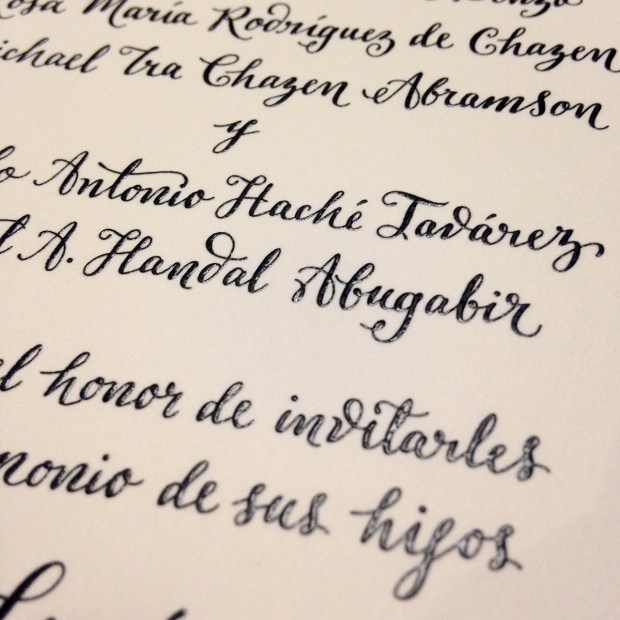 Rosa María Rodríguez de Chazen
Michael Ira Chazen Abramson
y
Antonio Haché Tavárez
A. Handal Abugabir
el honor de invitarles
de sus hijos